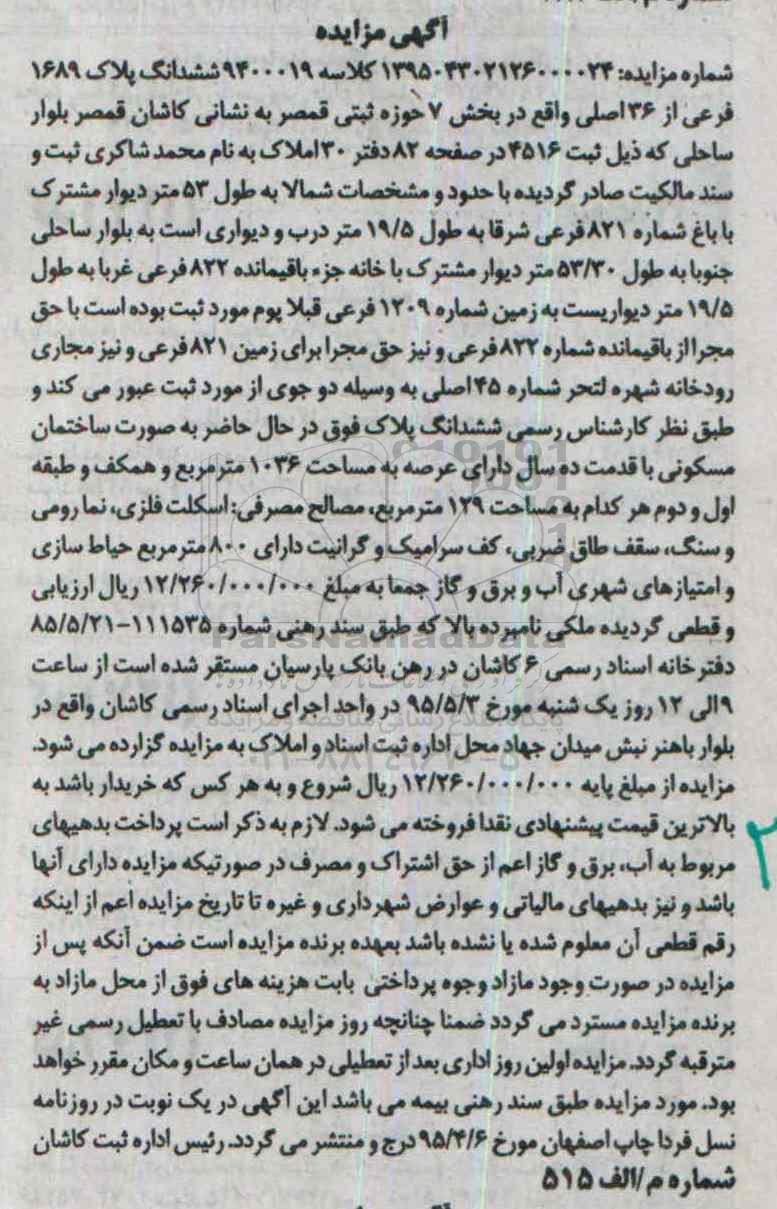 آگهی مزایده
شماره مزایده: ۱۳۹۵۰۴۳۰۲۱۲۶۰۰۰۰۲۴ کلاسه ۹۴۰۰۰۱۹ ششدانگ پلاک ۱۶۸۹
فرعی از ۳۶ اصلی واقع در بخش ۷ حوزه ثبتی قمصر به نشانی کاشان قمصر بلوار
ساحلی که ذیل ثبت ۴۵۱۶ در صفحه ۸۲ دفتر ۳۰ املاک به نام محمد شاکری ثبت و
سند مالکیت صادر گردیده با حدود و مشخصات شمالا به طول ۵۳ متر دیوار مشترک
با باغ شماره ۸۲۱ فرعی شرقا به طول ۱۹/۵ متر درب و دیواری است به بلوار ساحلی
جنوبا به طول ۵۳/۳۰ متر دیوار مشترک با خانه جزء باقیمانده ۸۲۲ فرعی غربا به طول
۱۹/۵ متر دیواریست به زمین شماره ۱۲۰۹ فرعی قبلا پوم مورد ثبت بوده است با حق
مجرا از باقیمانده شماره ۸۲۲ فرعی و نیز حق مجرا برای زمین ۸۲۱ فرعی و نیز مجاری
رودخانه شهره لتحر شماره ۴۵ اصلی به وسیله دو جوی از مورد ثبت عبور می کند و
طبق نظر کارشناس رسمی ششدانگ پلاک فوق در حال حاضر به صورت ساختمان
مسکونی با قدمت ده سال دارای عرصه به مساحت ۱۰۳۶ مترمربع و همکف و طبقه
اول و دوم هر کدام به مساحت ۱۲۹ مترمربع، مصالح مصرفی: اسکلت فلزی، نما رومی
و سنگ، سقف طاق ضربی، کف سرامیک و گرانیت دارای ۸۰۰ مترمربع حیاط سازی
و امتیازهای شهری آب و برق و گاز جمعا به مبلغ ۱۲/۲۶۰/۰۰۰/۰۰۰ ریال ارزیابی
و قطعی گردیده ملکی نامبرده بالا که طبق سند رهنی شماره ۱۱۱۵۳۵-۸۵/۵/۲۱
دفترخانه اسناد رسمی ۶ کاشان در رهن بانک پارسیان مستقر شده است از ساعت
۹ الی ۱۲ روز یک شنبه مورخ ۹۵/۵/۳ در واحد اجرای اسناد رسمی کاشان واقع در
بلوار باهنر نبش میدان جهاد محل اداره ثبت اسناد و املاک به مزایده گزارده می شود.
مزایده از مبلغ پایه ۱۲/۲۶۰/۰۰۰/۰۰۰ ریال شروع و به هر کس که خریدار باشد به
بالاترین قیمت پیشنهادی نقدا فروخته می شود. لازم به ذکر است پرداخت بدهیهای
مربوط به آب، برق و گاز اعم از حق اشتراک و مصرف در صورتیکه مزایده دارای آنها
باشد و نیز بدهیهای مالیاتی و عوارض شهرداری و غیره تا تاریخ مزایده اعم از اینکه
رقم قطعی آن معلوم شده یا نشده باشد بعهده برنده مزایده است ضمن آنکه پس از
مزایده در صورت وجود مازاد وجوه پرداختی بابت هزینه های فوق از محل مازاد به
برنده مزایده مسترد می گردد ضمنا چنانچه روز مزایده مصادف با تعطیل رسمی غیر
مترقبه گردد. مزایده اولین روز اداری بعد از تعطیلی در همان ساعت و مکان مقرر خواهد
بود. مورد مزایده طبق سند رهنی بیمه می باشد این آگهی در یک نوبت در روزنامه
نسل فردا چاپ اصفهان مورخ ۹۵/۴/۶ درج و منتشر می گردد. رئیس اداره ثبت کاشان
شماره م/الف ۵۱۵
ParsNamadData